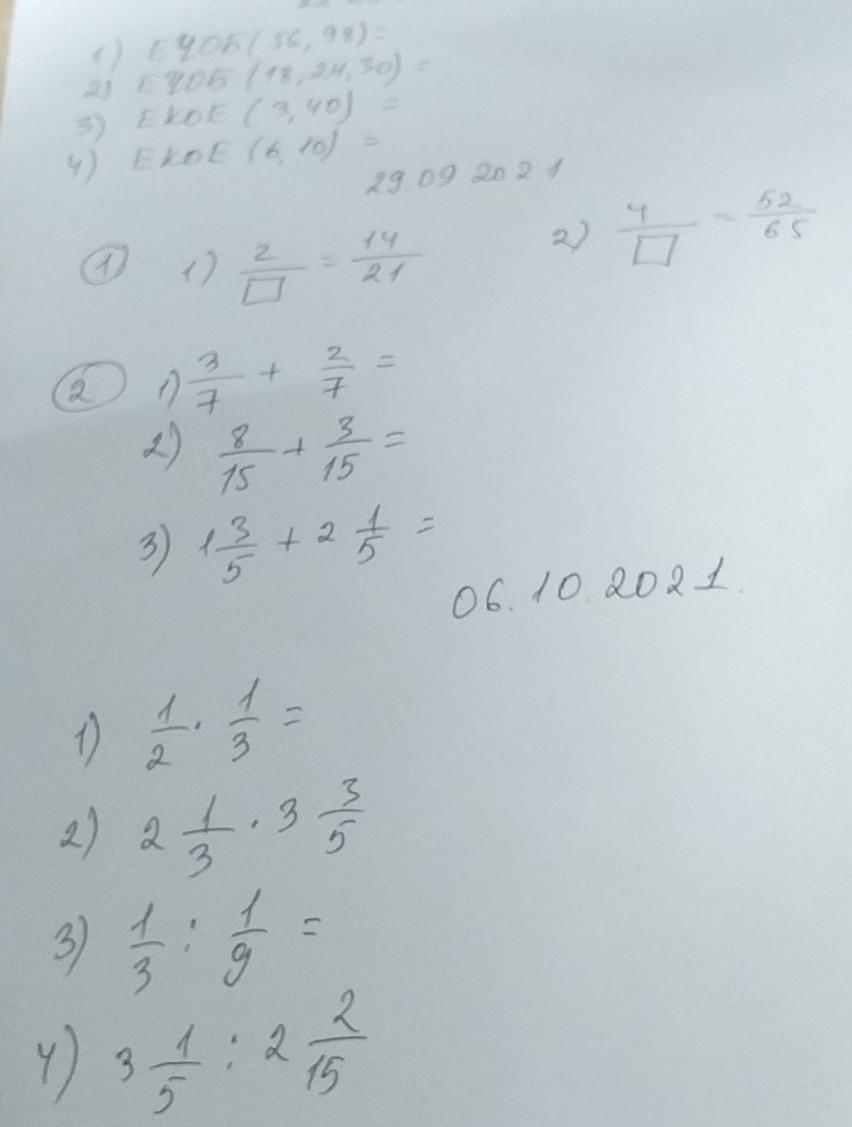 1) ЕҮОБ(56, 98)=
2) ЕҮОБ (18, 24, 30) =
3) ЕКОЕ (3, 40) =
4) ЕКОЕ (6, 10) =
29.09 2021
① 1) 2/□ = 14/21 2) 4/□ = 52/65
② 1) 3/7 + 2/7 =
2) 8/15 + 3/15 =
3) 1 3/5 + 2 1/5 =
06.10.2021.
1) 1/2 · 1/3 =
2) 2 1/3 · 3 3/5
3) 1/3 : 1/9 =
4) 3 1/5 : 2 2/15